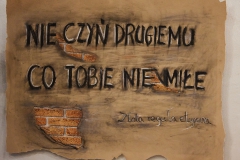 NIE CZYŃ DRUGIEMU
CO TOBIE NIE MIŁE
Złota